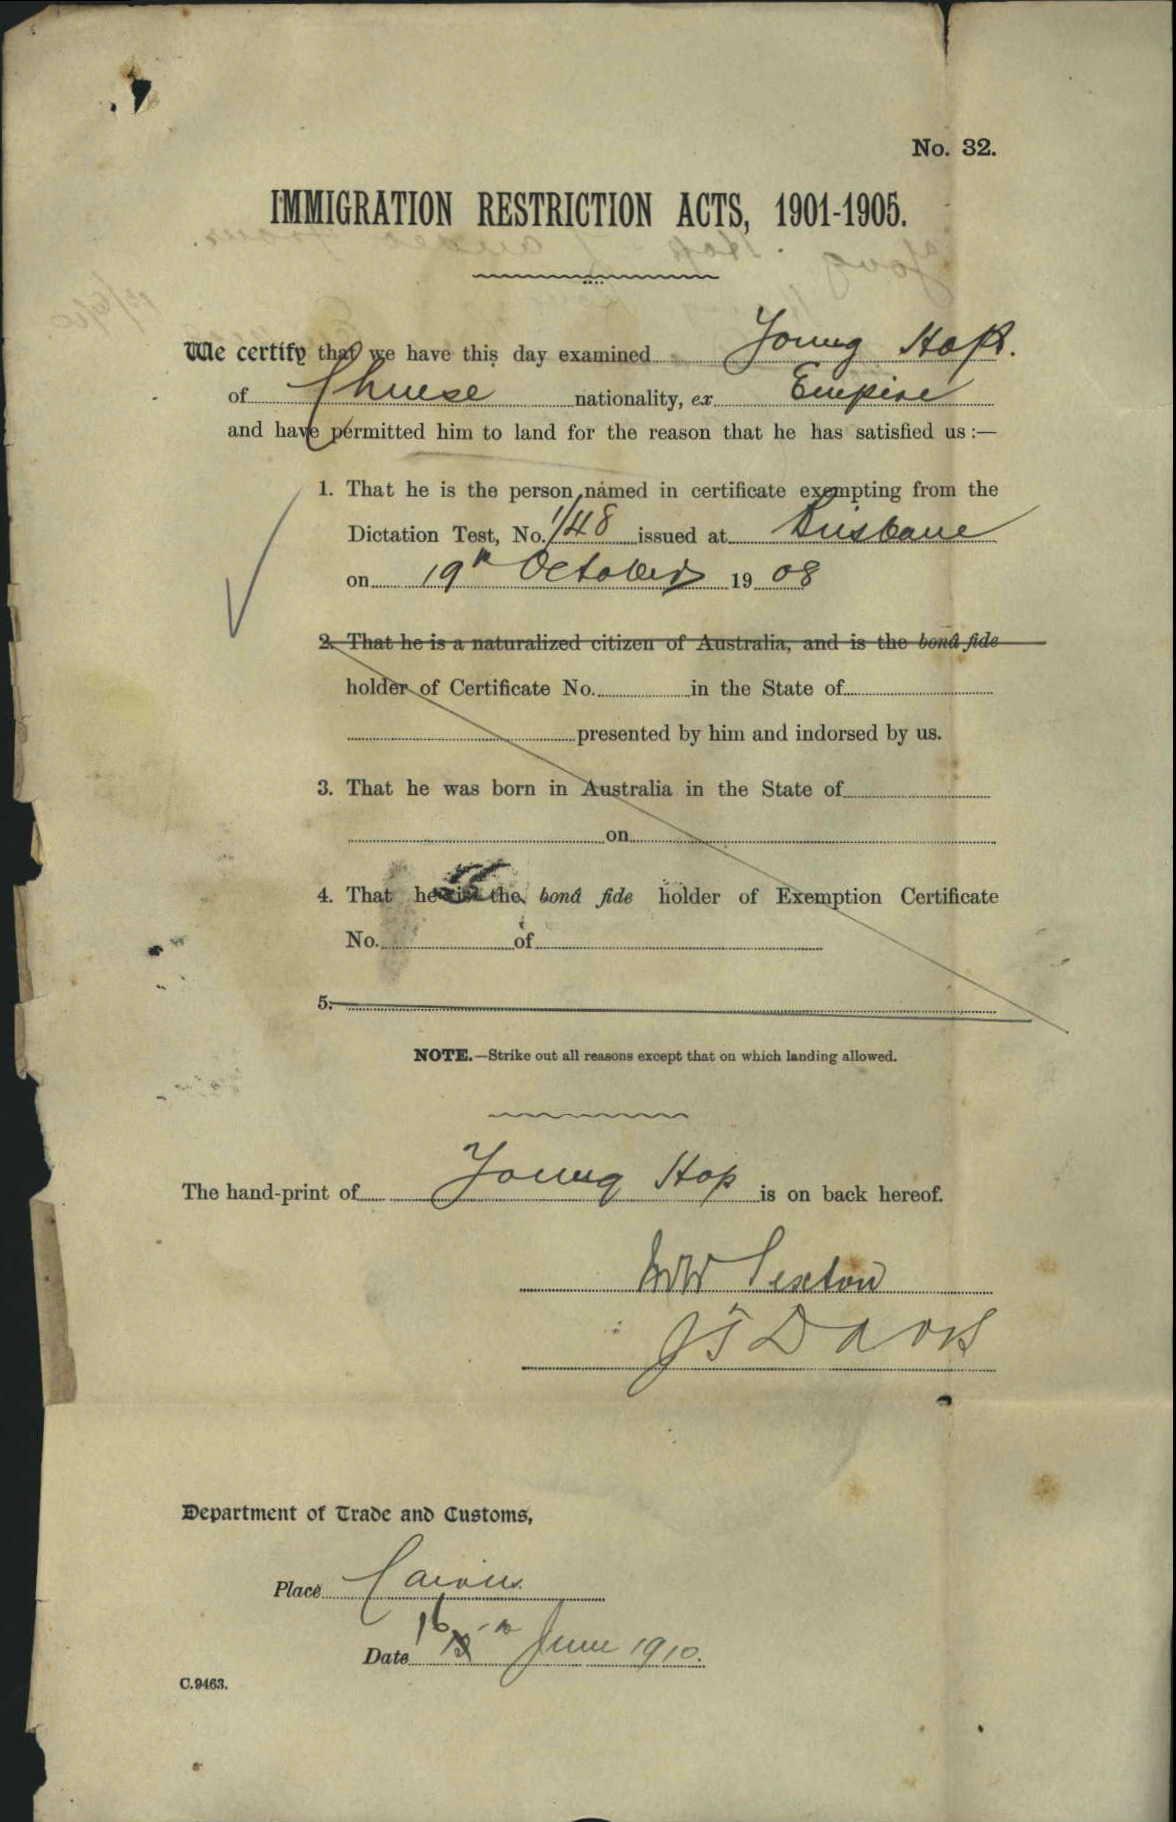 No. 32.
IMMIGRATION RESTRICTION ACTS, 1901-1905.
We certify that we have this day examined Young Hop.
of Chinese nationality, ex Empire
and have permitted him to land for the reason that he has satisfied us :—
1. That he is the person named in certificate exempting from the
Dictation Test, No. 1/48 issued at Brisbane
on 19th October 1908
2. That he is a naturalized citizen of Australia, and is the bonâ fide
holder of Certificate No. in the State of
presented by him and indorsed by us.
3. That he was born in Australia in the State of
on
4. That he is the bonâ fide holder of Exemption Certificate
No. of
5.
NOTE.—Strike out all reasons except that on which landing allowed.
The hand-print of Young Hop is on back hereof.
Sexton
Davis
Department of Trade and Customs,
Place Cairns
Date 16th June 1910.
C.9463.